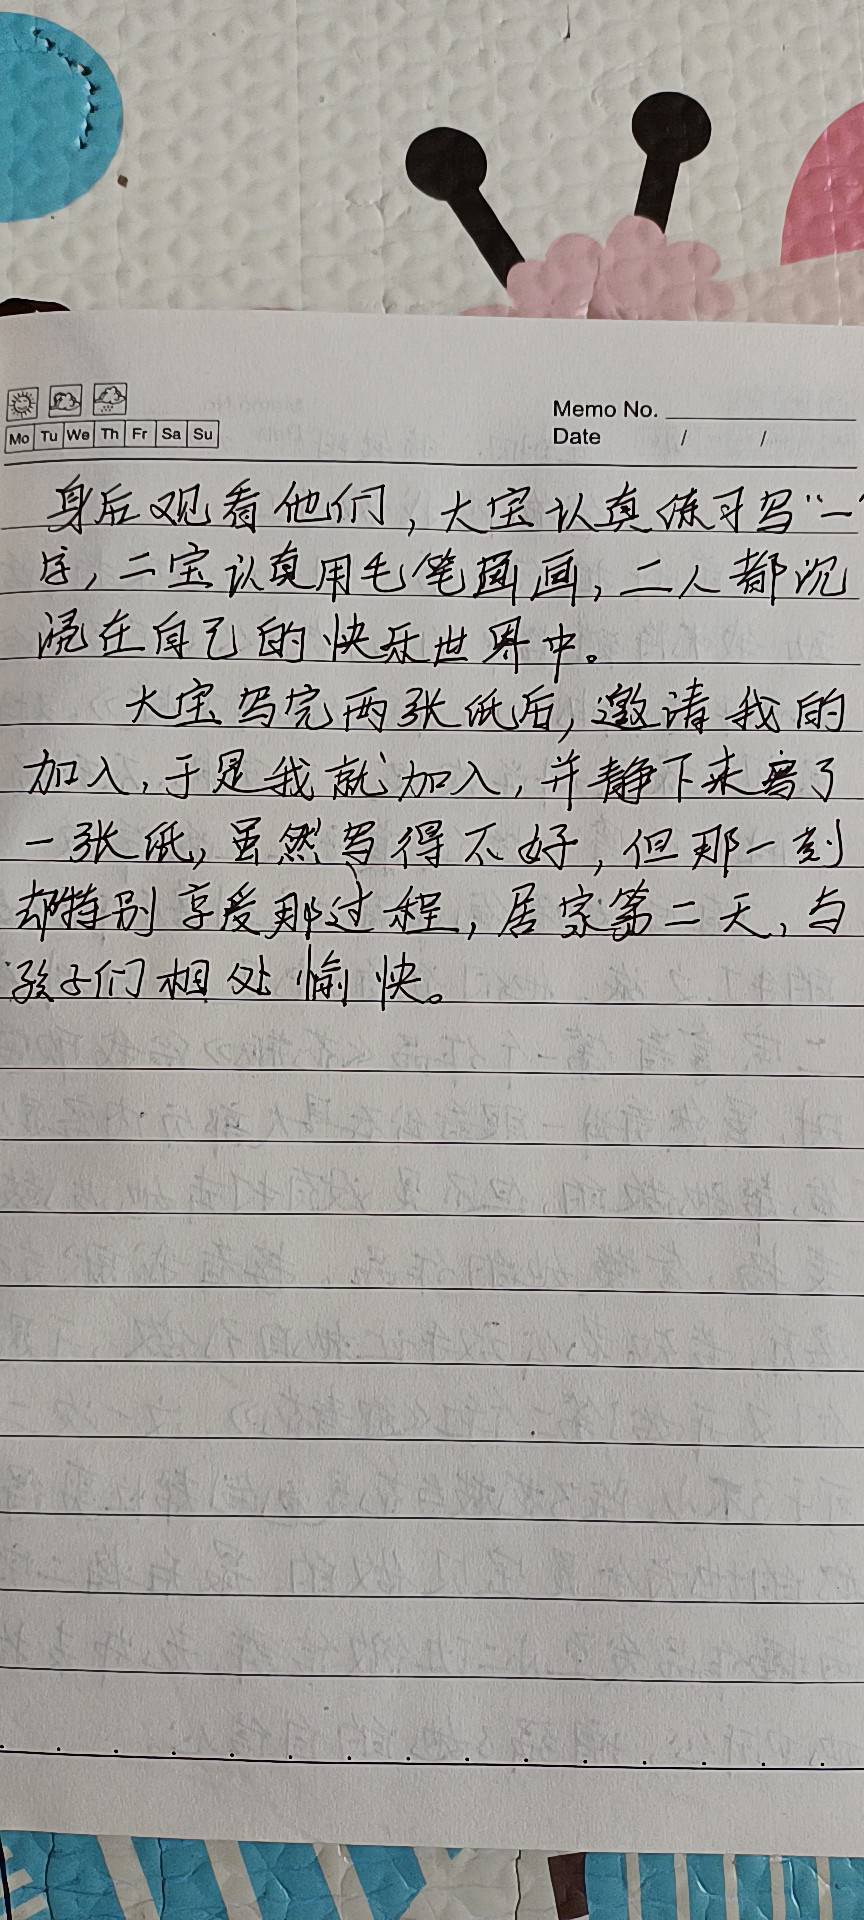 Memo No.
Mo Tu We Th Fr Sa Su
Date / /
身后观看他们，大宝认真练习写“一”
字，二宝认真用毛笔画画，二人都沉
浸在自己的快乐世界中。
大宝写完两张纸后，邀请我的
加入，于是我就加入，并静下来写了
一张纸，虽然写得不好，但那一刻
却特别享受那过程，居家第二天，与
孩子们相处愉快。